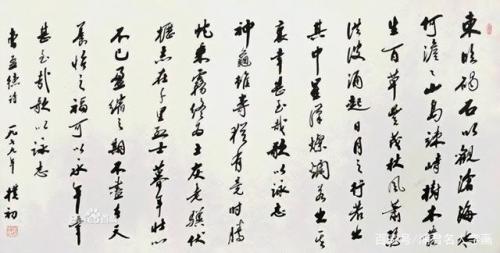 東临碣石以觀滄海水
何澹〻山島竦峙樹木叢
生百草豐茂秋風蕭瑟
洪波涌起日月之行若出
其中星漢燦爛若出其
裏幸甚至哉歌以詠志
神龜雖壽猶有竟時騰
蛇乘霧終为土灰老驥伏
櫪志在千里烈士暮年壯心
不已盈縮之期不盡在天
養怡之福可以永年幸
甚至哉歌以詠志
曹孟德诗 一九 年 樸初